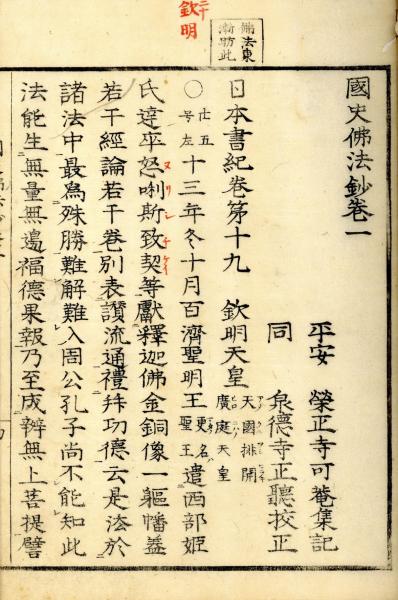 三十
欽明
佛法東
漸昉此
國史佛法鈔卷一
平安 榮正寺可菴集記
同 泉德寺正聽挍正
日本書紀卷第十九 欽明天皇 天國排開廣庭天皇
〇廿五号左十三年冬十月百濟聖明王更名聖王遣西部姬
氏達率怒唎斯致契等獻釋迦佛金銅像一軀幡蓋
若干經論若干卷別表讚流通禮拜功德云是法於
諸法中最爲殊勝難解難入周公孔子尚不能知此
法能生無量無邊福德果報乃至成辨無上菩提譬